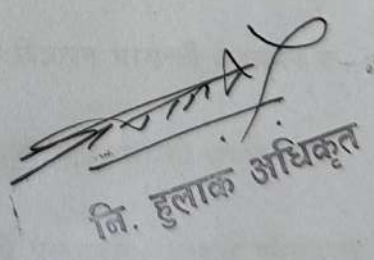 नि. हुलाक अधिकृत